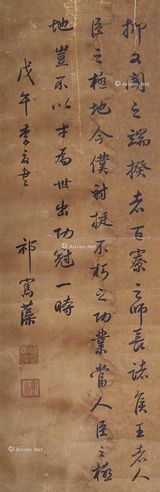 抑又聞之端揆者百寮之師長諸侯王者人
臣之極地今僕射挺不朽之功業當人臣之極
地豈不以才為世出功冠一時
戊午季夏書
祁寯藻